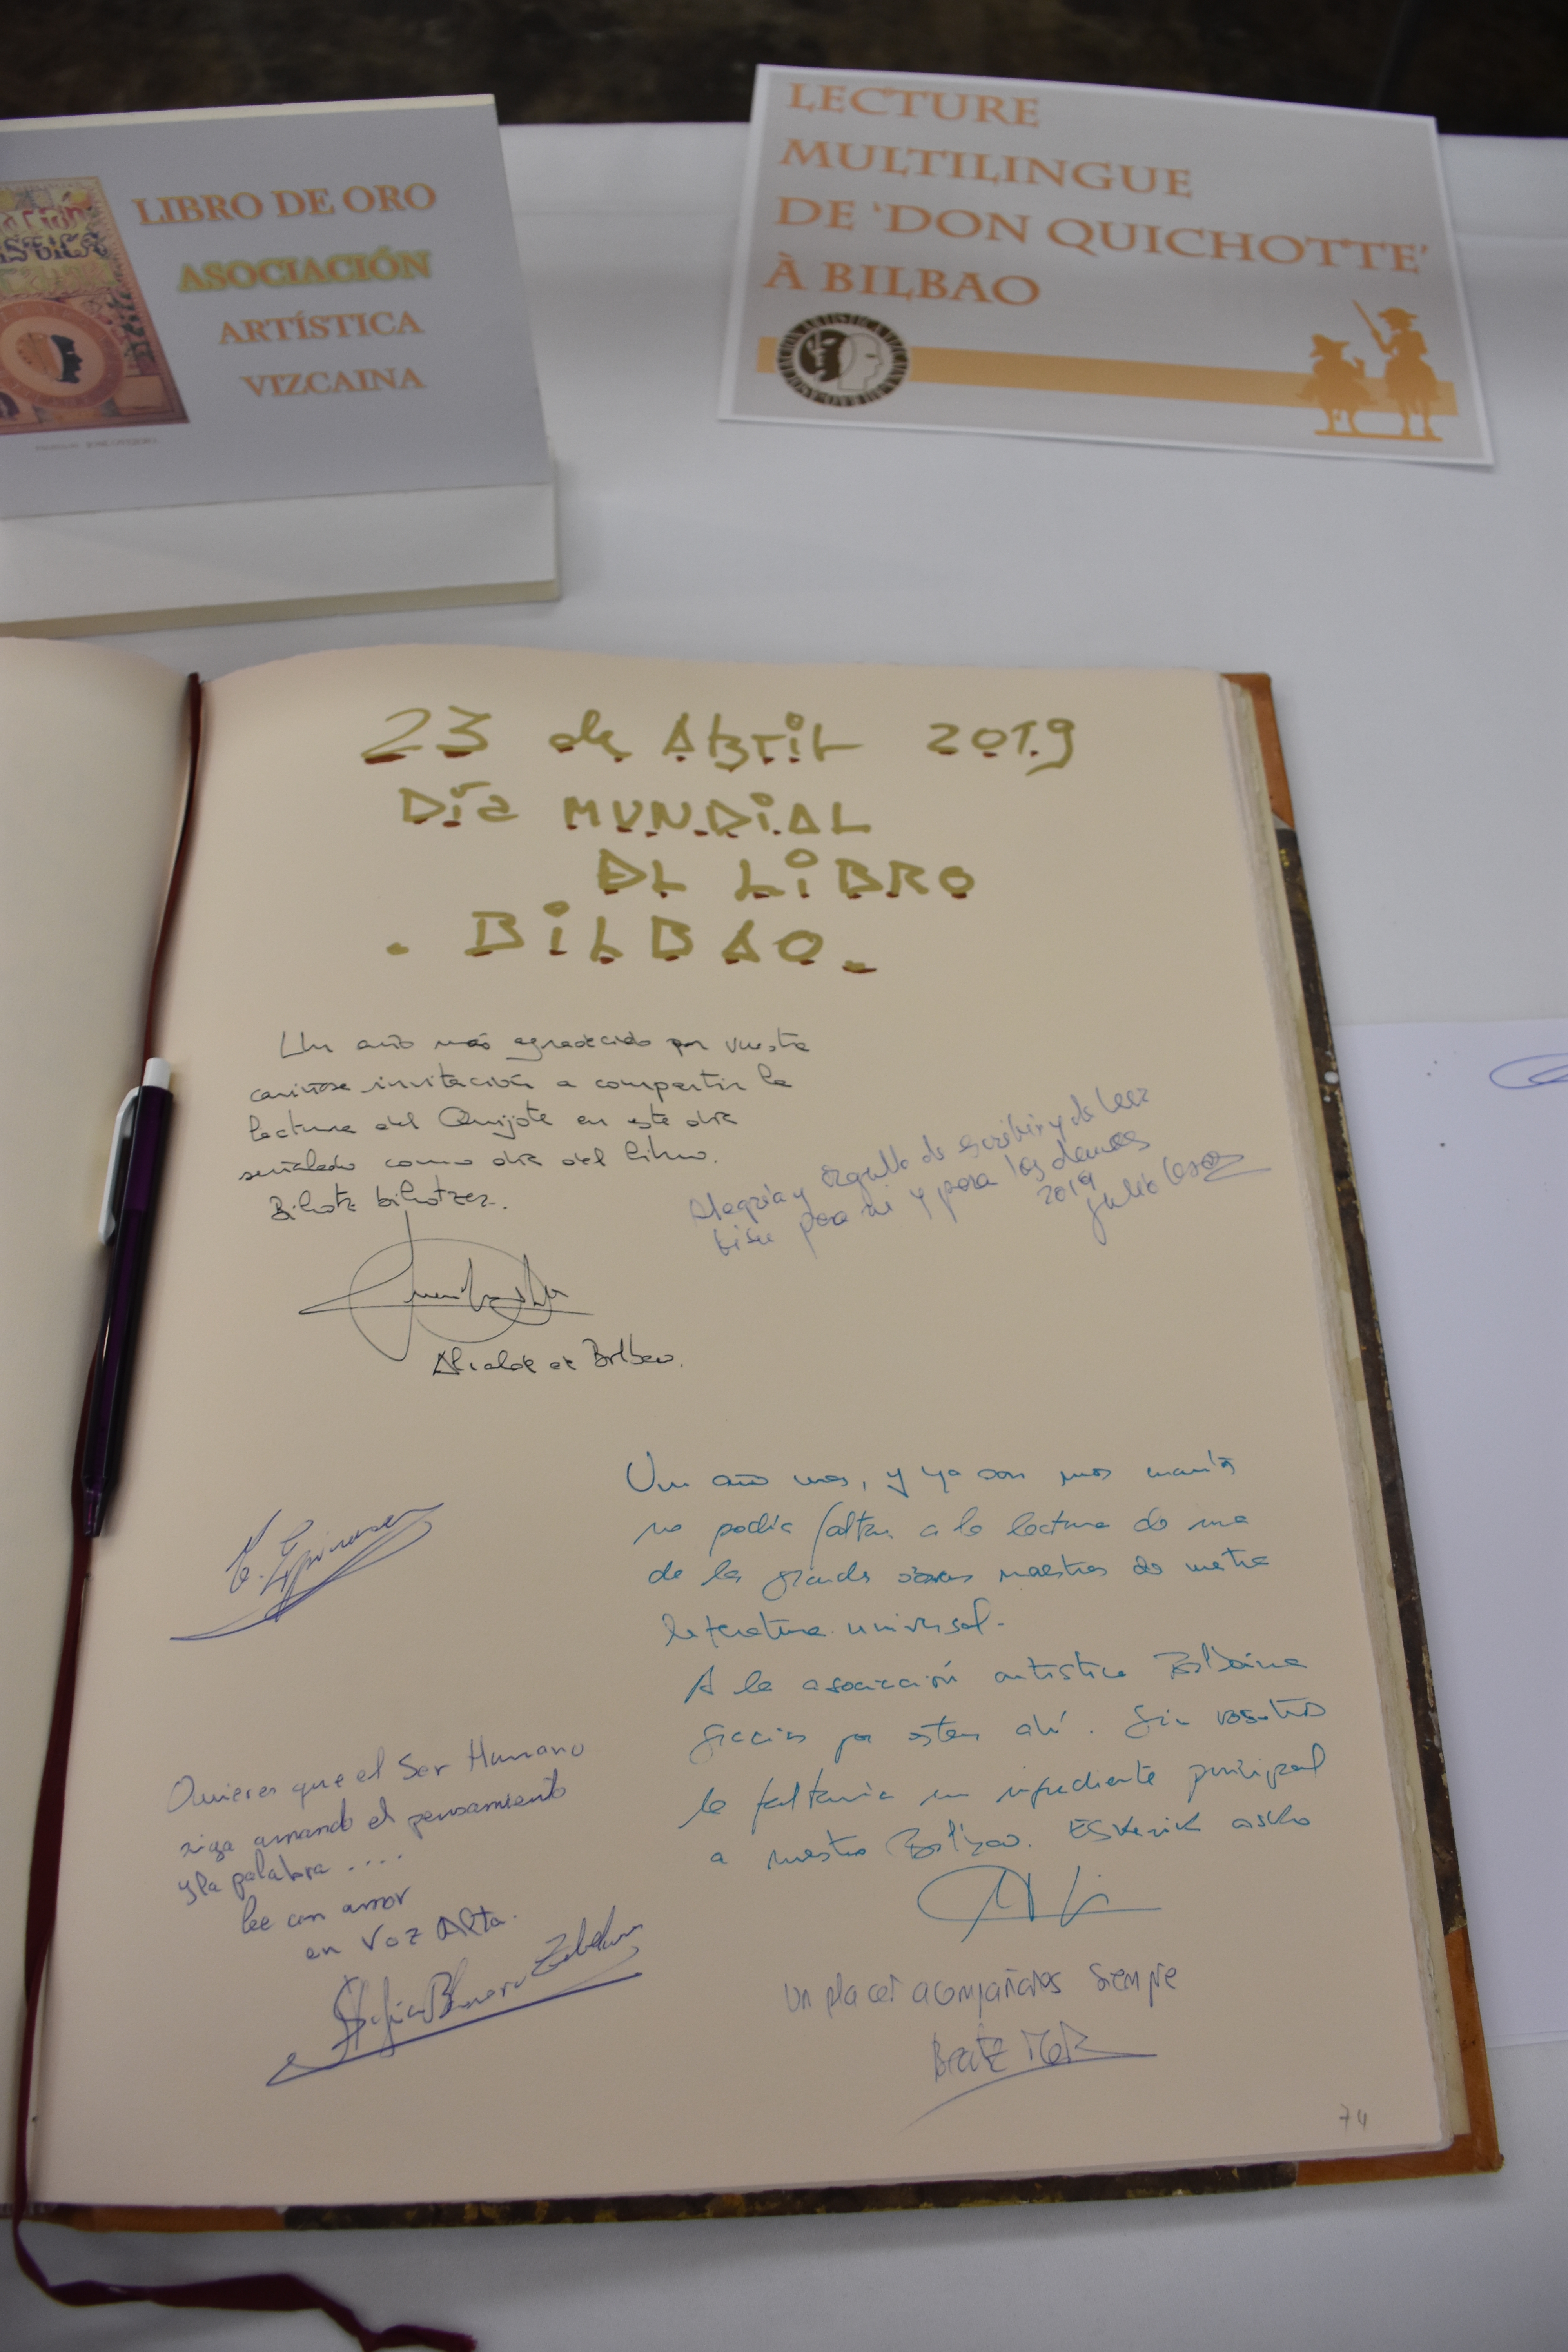 LIBRO DE ORO
ASOCIACIÓN
ARTÍSTICA
VIZCAINA
LECTURE
MULTILINGUE
DE 'DON QUICHOTTE'
À BILBAO
23 de Abril 2019
Día MUNDiAL
DEL LiBRO
. BiLBAO.
Un año más agradecido por vuestra
cariñosa invitación a compartir la
lectura del Quijote en este día
señalado como día del libro.
Bihotz bihotzez.
Alcalde de Bilbao.
Alegría y orgullo de escribir y de leer
para mi y para los demás
2019
Julio
Un año mas, y ya son unos cuantos
no podía faltar a la lectura de una
de las grandes obras maestras de nuestra
literatura universal.
A la asociación artística Bilbaina
gracias por estar ahí. Sin vosotros
le faltaría un ingrediente principal
a nuestro Bilbao. ESKerrik asko
Quieres que el Ser Humano
siga amando el pensamiento
y la palabra ....
lee con amor
en Voz Alta.
Un placer acompañaros siempre
74